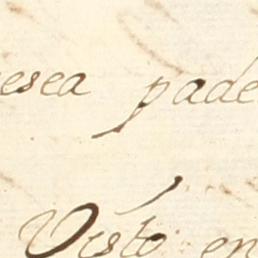 esea pade
Visto en